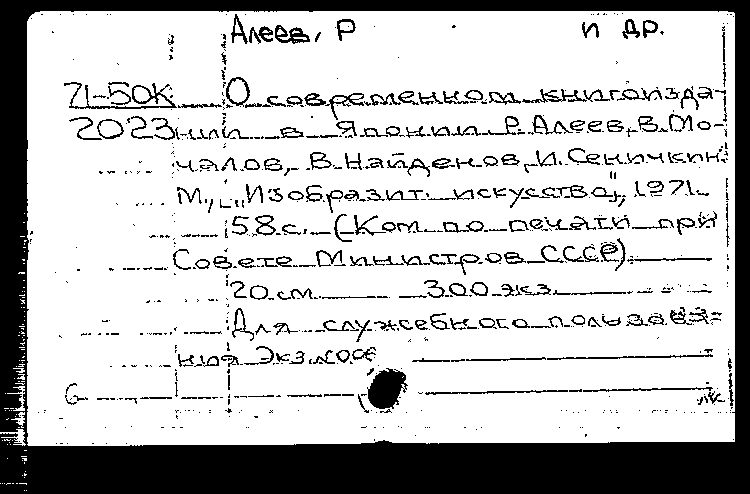 Алеев, Р и др.
71-50К О современном книгоизда-
2023 нии в Японии. Р. Алеев, В. Мо-
чалов, В. Найденов, И. Сеничкин.
М., „Изобразит. искусство", 1971.
58 с. (Ком. по печати при
Совете Министров СССР).
20 см 300 экз.
Для служебного пользова-
ния Экз.
6